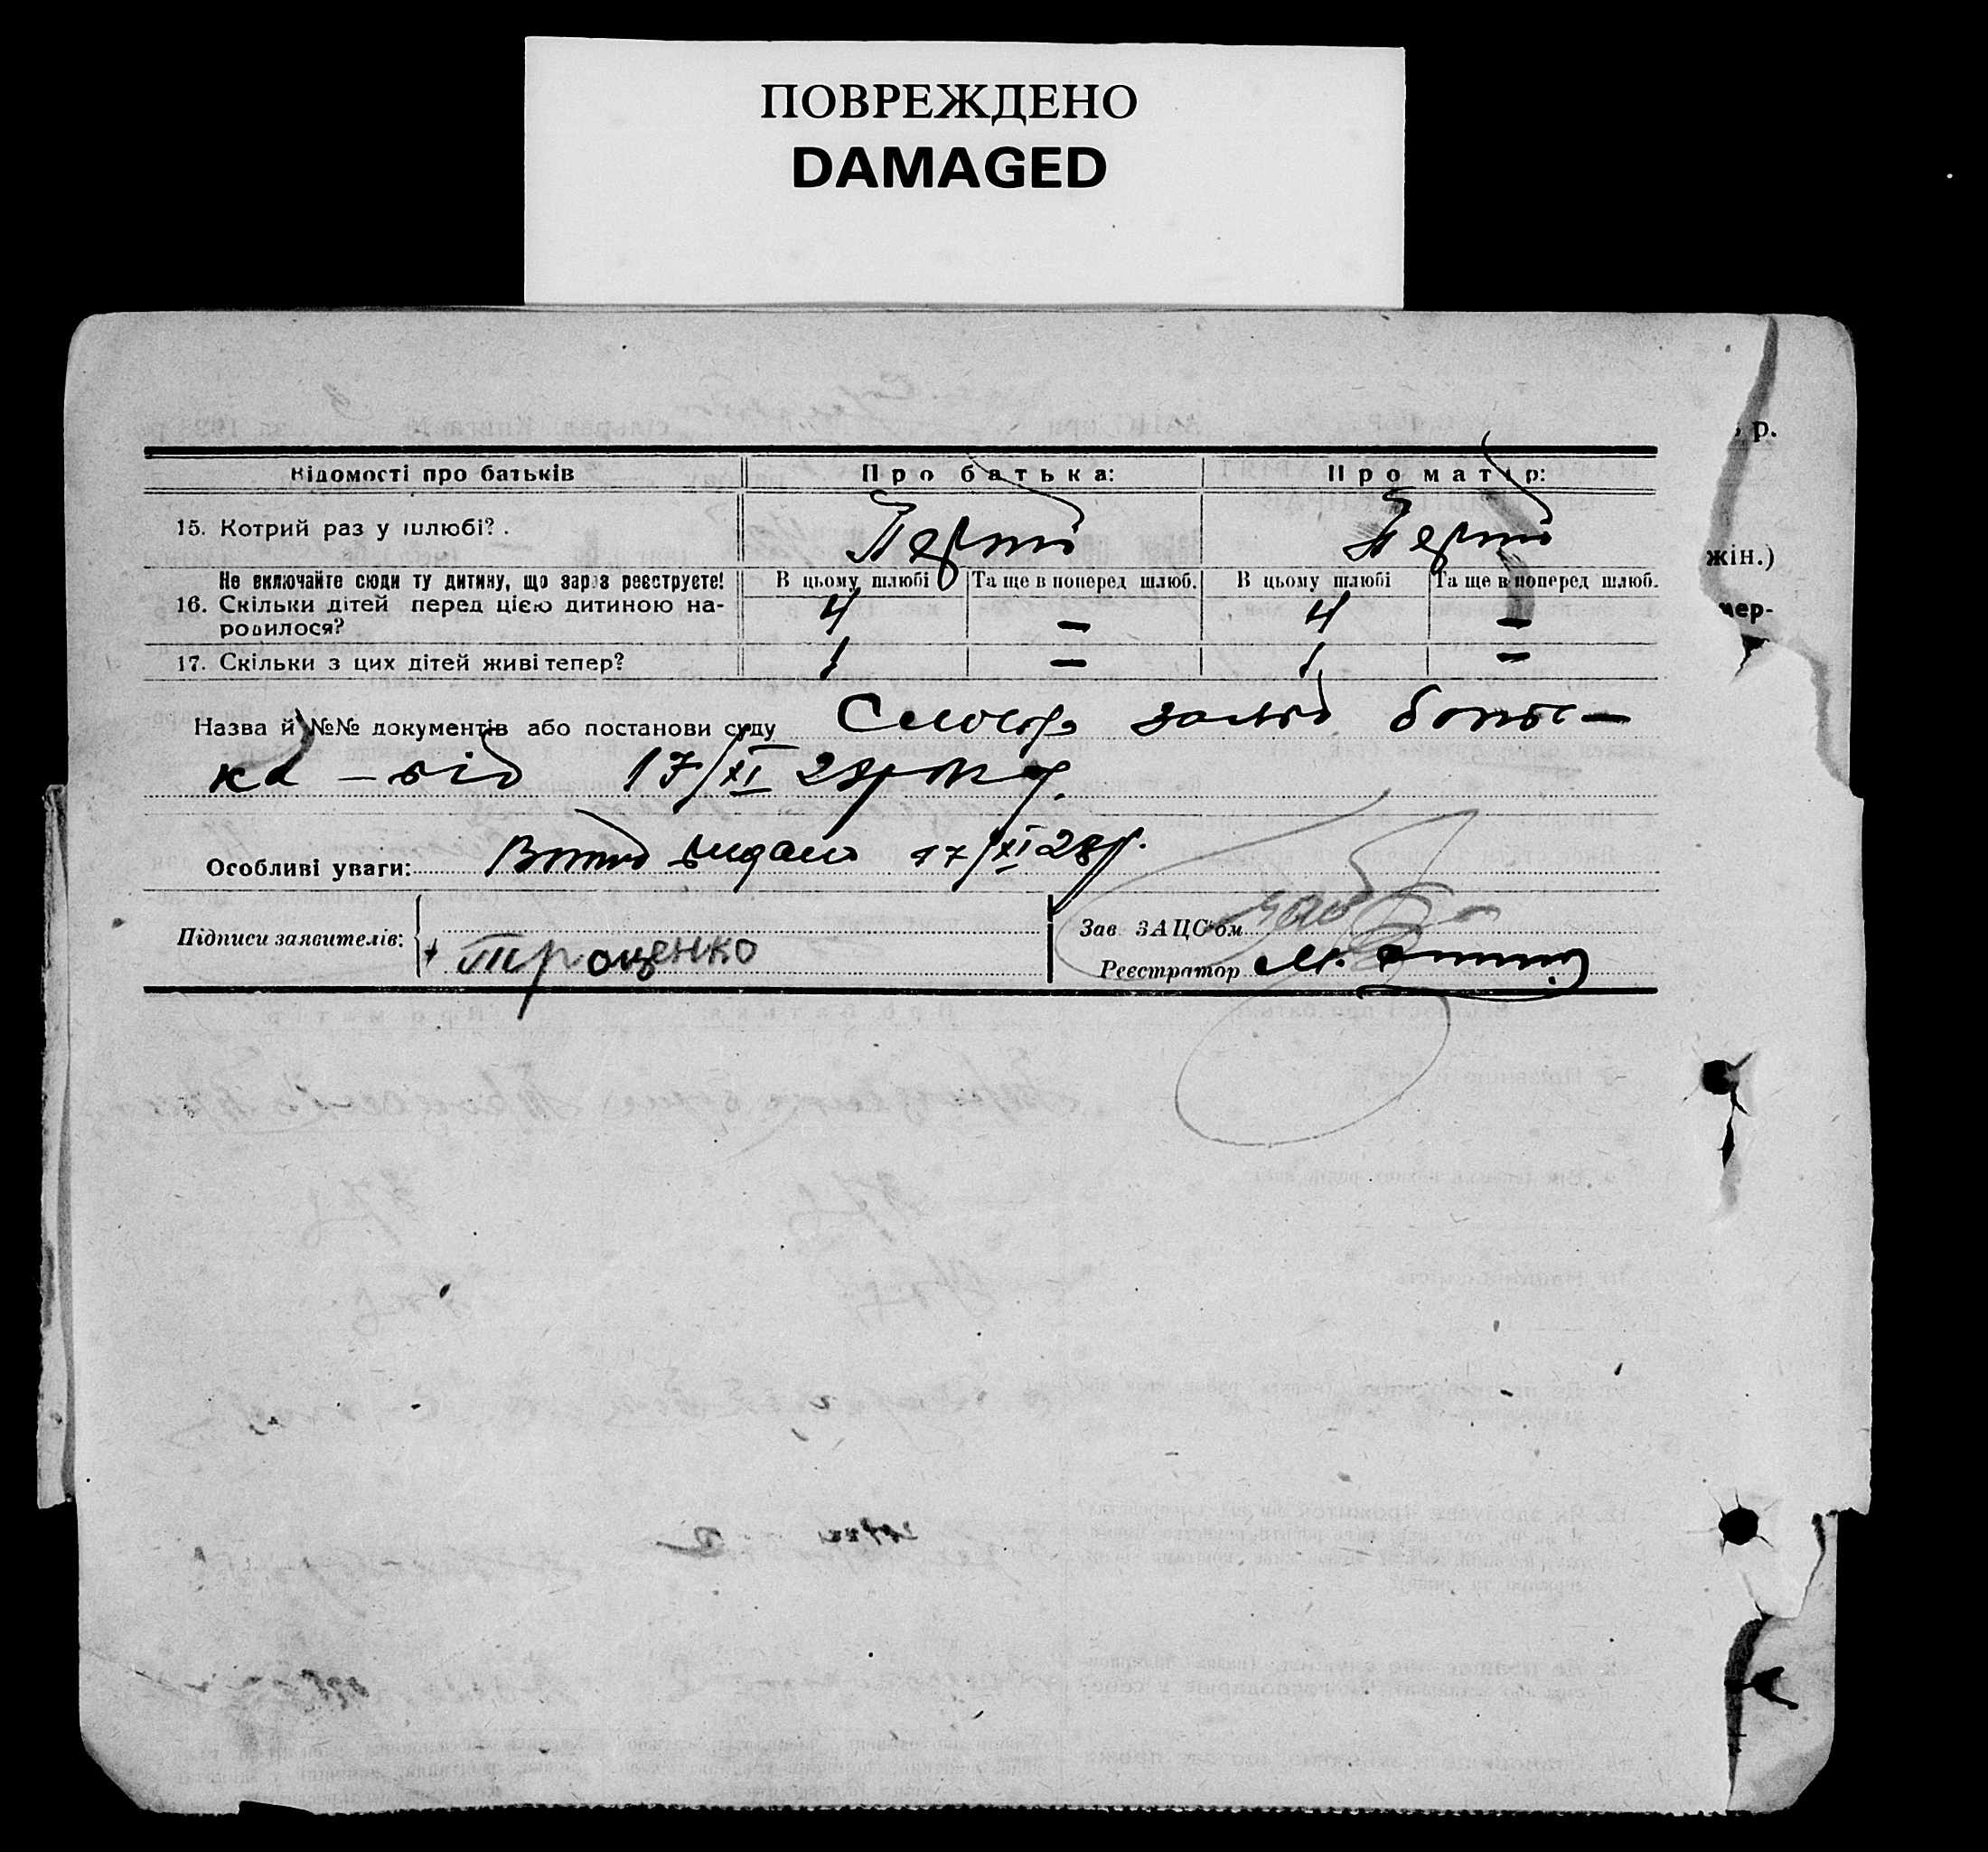 ПОВРЕЖДЕНО
DAMAGED
р.
Відомості про батьків Про батька: Про матір:
15. Котрий раз у шлюбі? . Перший Перший
жін.)
Не включайте сюди ту дитину, що зараз реєструєте! В цьому шлюбі Та ще в поперед шлюб. В цьому шлюбі Та ще в поперед шлюб.
16. Скільки дітей перед цією дитиною на- 4 — 4 —
родилося?
мер-
17. Скільки з цих дітей живі тепер? 1 — 1 —
Назва й №№ документів або постанови суду Словр заява бать-
ка – від 17/XI 28 року.
Особливі уваги: Витяг видано 17/XI 28 р.
Підписи заявителів: Зав. ЗАЦС'ом
+ Трощенко Реєстратор М.